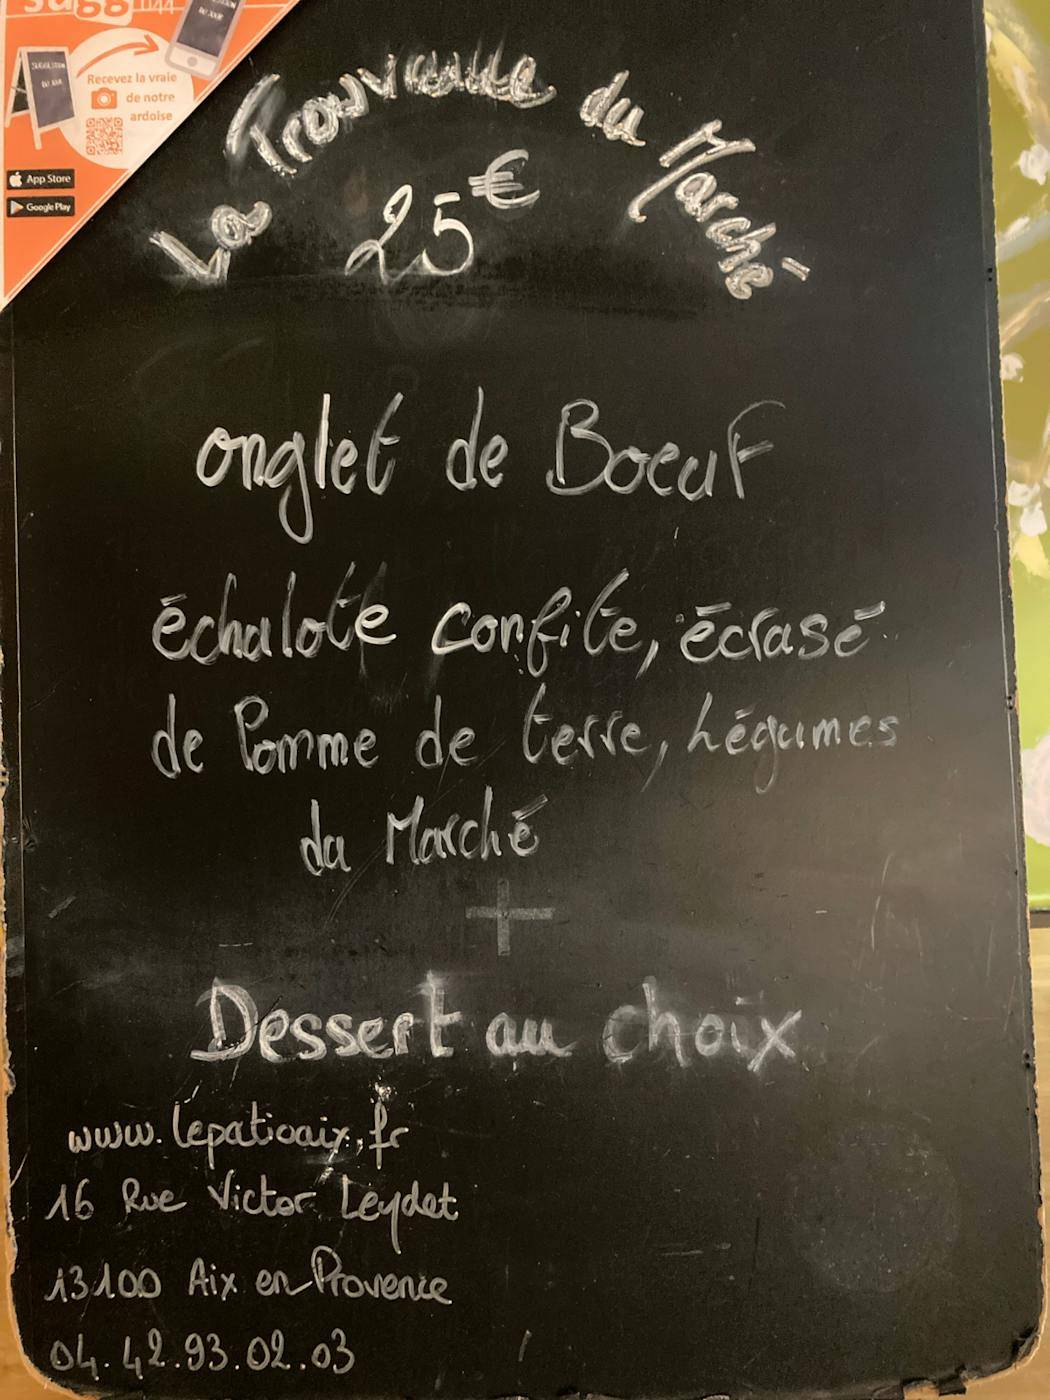 SUGGESTION
DU JOUR
Recevez la vraie
de notre
ardoise
App Store
Google Play
La Trouvaille du Marché
25€
onglet de Boeuf
échalote confite, écrasé
de Pomme de terre, Légumes
du Marché
+
Dessert au choix
www.lepatioaix.fr
16 Rue Victor Leydet
13100 Aix en Provence
04.42.93.02.03